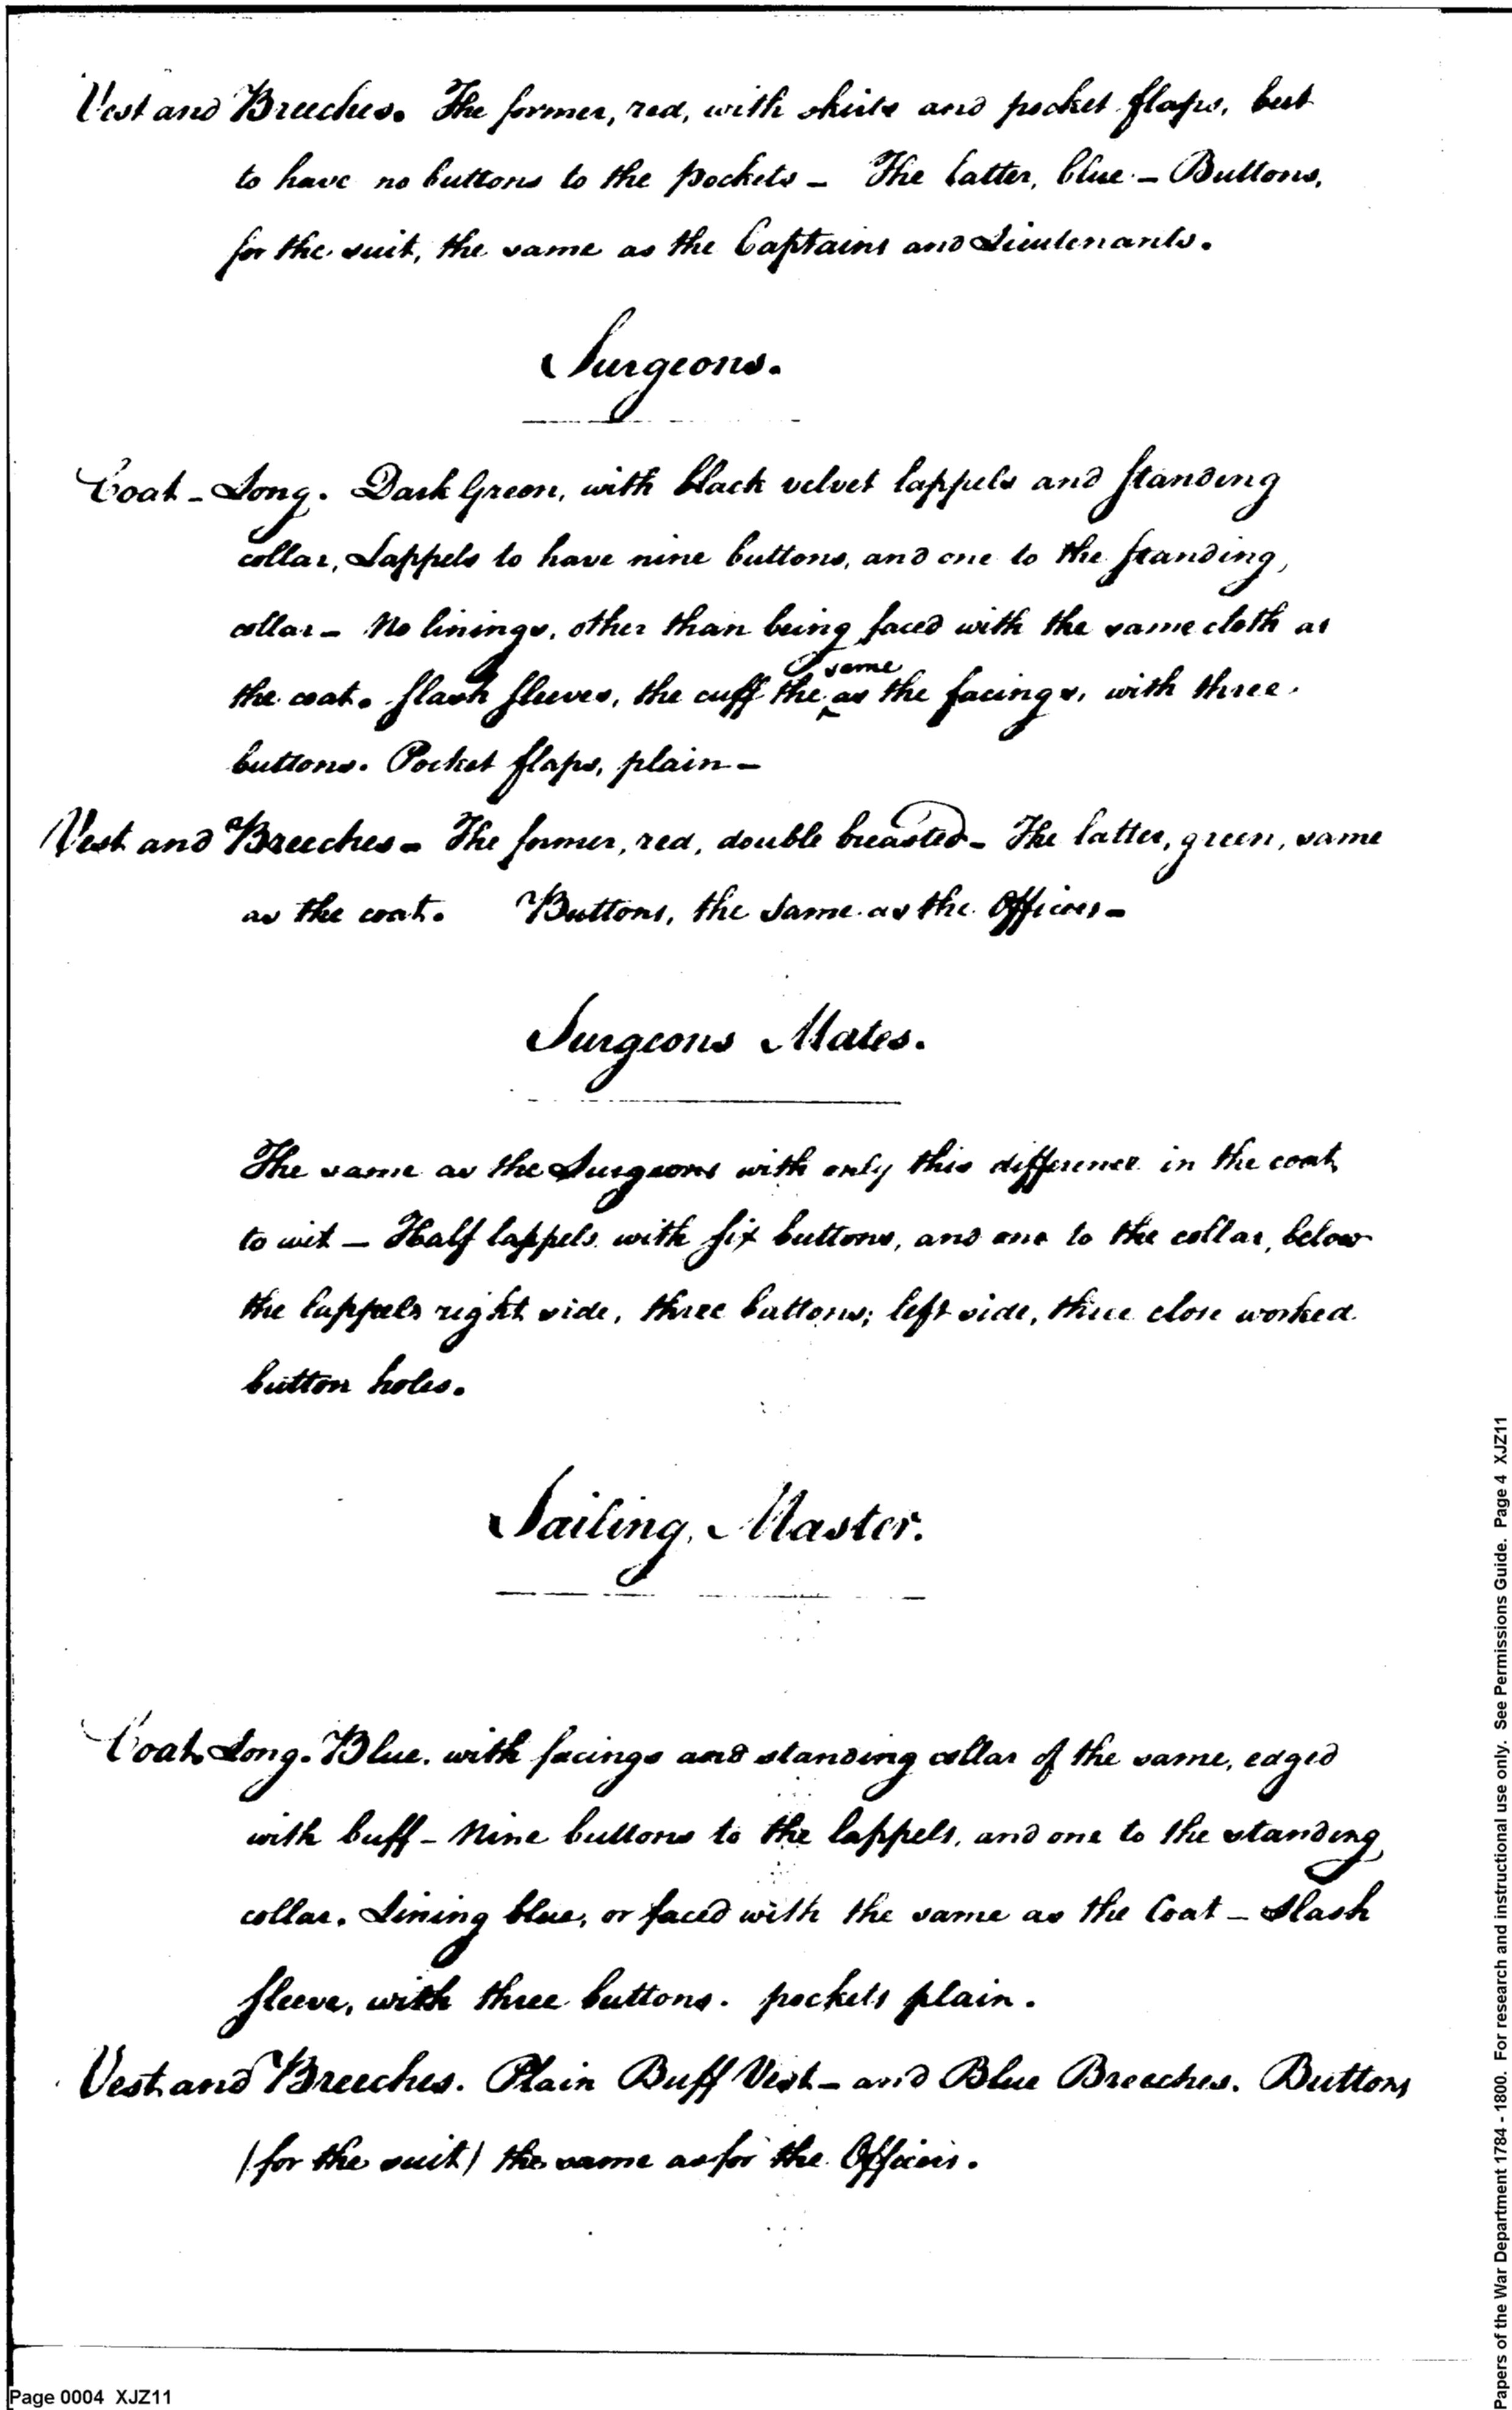 Vest and Breeches. The former, red, with skirts and pocket flaps, but
to have no buttons to the pockets – The latter, blue – Buttons,
for the suit, the same as the Captains and Lieutenants.
Surgeons.
Coat – Long. Dark Green, with black velvet lappels and standing
collar, Lappels to have nine buttons, and one to the standing
collar – No linings, other than being faced with the same cloth as
the coat. slash sleeves, the cuff the same as the facings, with three
buttons. Pocket flaps, plain –
Vest and Breeches – The former, red, double breasted – The latter, green, same
as the coat. Buttons, the same as the Officers –
Surgeons Mates.
The same as the Surgeons with only this difference in the coat
to wit – Half lappels with six buttons, and one to the collar, below
the lappels right side, three buttons; left side, three close worked
button holes.
Sailing Master.
Coat. Long. Blue, with facings and standing collar of the same, edged
with buff – Nine buttons to the lappels, and one to the standing
collar. Lining blue, or faced with the same as the Coat – Slash
sleeve, with three buttons. pockets plain.
Vest and Breeches. Plain Buff Vest – and Blue Breeches. Buttons
(for the suit) the same as for the Officers.
Page 0004 XJZ11
Papers of the War Department 1784 - 1800. For research and instructional use only. See Permissions Guide. Page 4 XJZ11